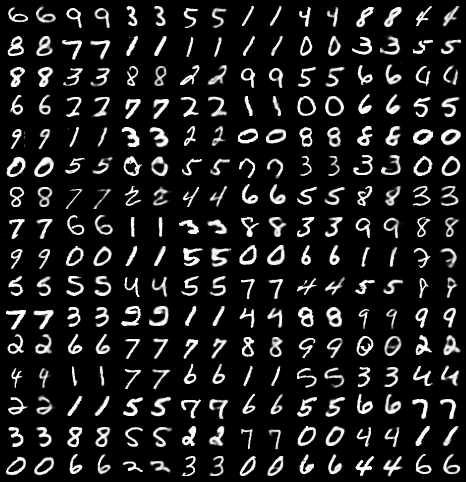 6 6 9 9 3 3 5 5 1 1 4 4 8 8 4 4
8 8 7 7 1 1 1 1 1 1 0 0 3 3 5 5
8 8 3 3 8 8 2 2 9 9 5 5 6 6 4 4
6 6 2 2 7 7 2 2 1 1 0 0 6 6 5 5
9 9 1 1 3 3 2 2 0 0 8 8 8 8 0 0
0 0 5 5 0 0 5 5 7 7 3 3 3 3 0 0
8 8 7 7 2 2 4 4 6 6 5 5 8 8 3 3
7 7 6 6 1 1 3 3 8 8 3 3 9 9 8 8
9 9 0 0 1 1 5 5 0 0 6 6 1 1 7 7
5 5 5 5 4 4 5 5 7 7 4 4 5 5 9 9
7 7 3 3 9 9 1 1 4 4 8 8 9 9 9 9
2 2 6 6 7 7 7 7 8 8 9 9 0 0 2 2
4 4 1 1 7 7 6 6 1 1 5 5 3 3 4 4
2 2 1 1 5 5 7 7 6 6 5 5 6 6 7 7
3 3 8 8 5 5 2 2 7 7 0 0 4 4 1 1
0 0 6 6 2 2 3 3 0 0 6 6 4 4 6 6